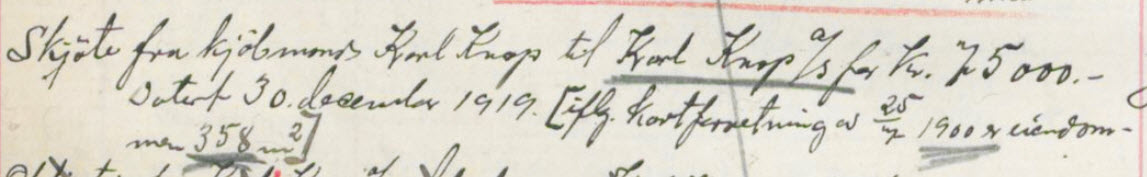 Skjöte fra kjöbmand Karl Knap til Karl Knap A/S for Kr. 75000.-
Datert 30. december 1919. [iflg. kartforretning av 25/7 1900 er eiendom-
men 358 m²]